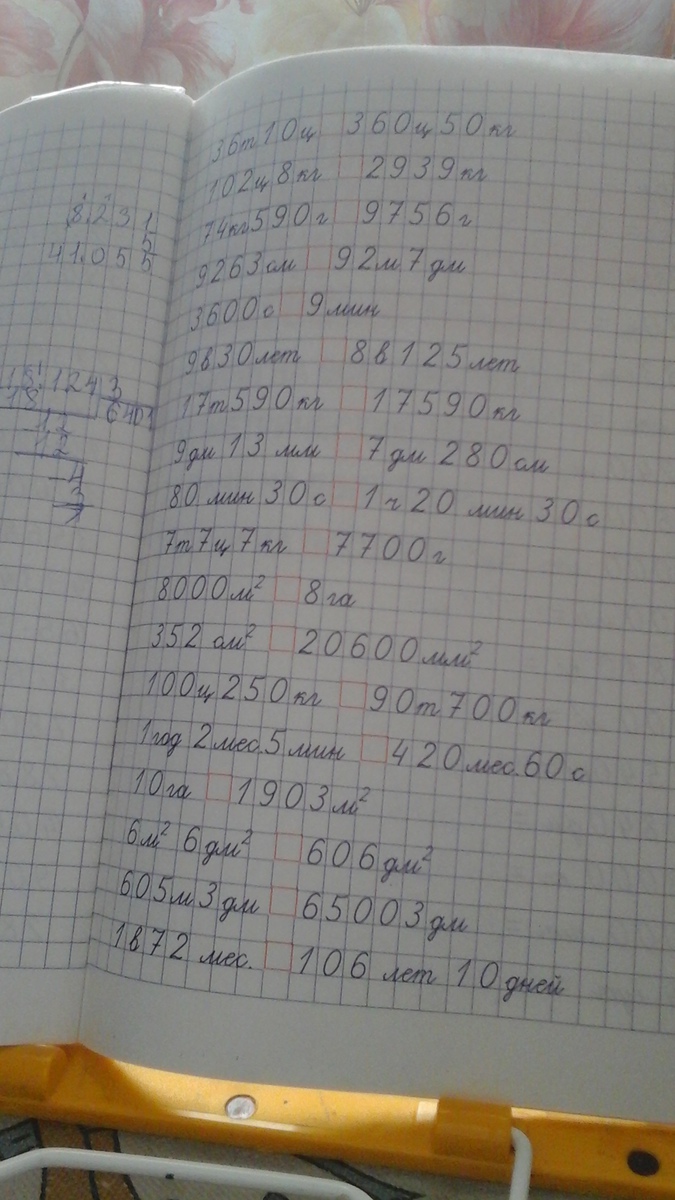 8.231
5
41.055
124 3
6401
12
4
3
36т10ц □ 360ц50кг
102ц8кг □ 2939кг
74кг590г □ 9756г
9263см □ 92м7дм
3600с □ 9мин
9в30лет □ 8в125лет
17т590кг □ 17590кг
9дм13мм □ 7дм280см
80мин30с □ 1ч20мин30с
7т7ц7кг □ 7700г
8000м² □ 8га
352см² □ 20600мм²
100ц250кг □ 90т700кг
1год2мес.5мин □ 420мес.60с
10га □ 1903м²
6м²6дм² □ 606дм²
605м3дм □ 65003дм
1в72мес. □ 106лет10дней